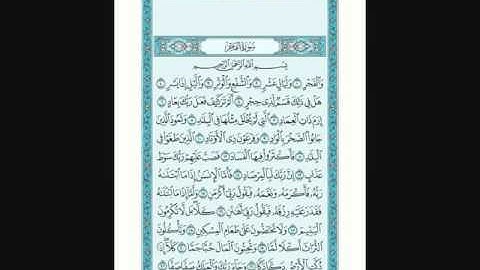 سورة الفجر
بسم الله الرحمن الرحيم
والفجر ١ وليال عشر ٢ والشفع والوتر ٣ والليل إذا يسر ٤
هل في ذلك قسم لذي حجر ٥ ألم تر كيف فعل ربك بعاد ٦
إرم ذات العماد ٧ التي لم يخلق مثلها في البلاد ٨ وثمود الذين
جابوا الصخر بالواد ٩ وفرعون ذي الأوتاد ١٠ الذين طغوا في
البلاد ١١ فأكثروا فيها الفساد ١٢ فصب عليهم ربك سوط
عذاب ١٣ إن ربك لبالمرصاد ١٤ فأما الإنسان إذا ما ابتلاه
ربه فأكرمه ونعمه فيقول ربي أكرمن ١٥ وأما إذا ما ابتلاه
فقدر عليه رزقه فيقول ربي أهانن ١٦ كلا بل لا تكرمون
اليتيم ١٧ ولا تحاضون على طعام المسكين ١٨ وتأكلون
التراث أكلا لما ١٩ وتحبون المال حبا جما ٢٠ كلا إذا
دكت الأرض دكا دكا ٢١ وجاء ربك والملك صفا صفا ٢٢